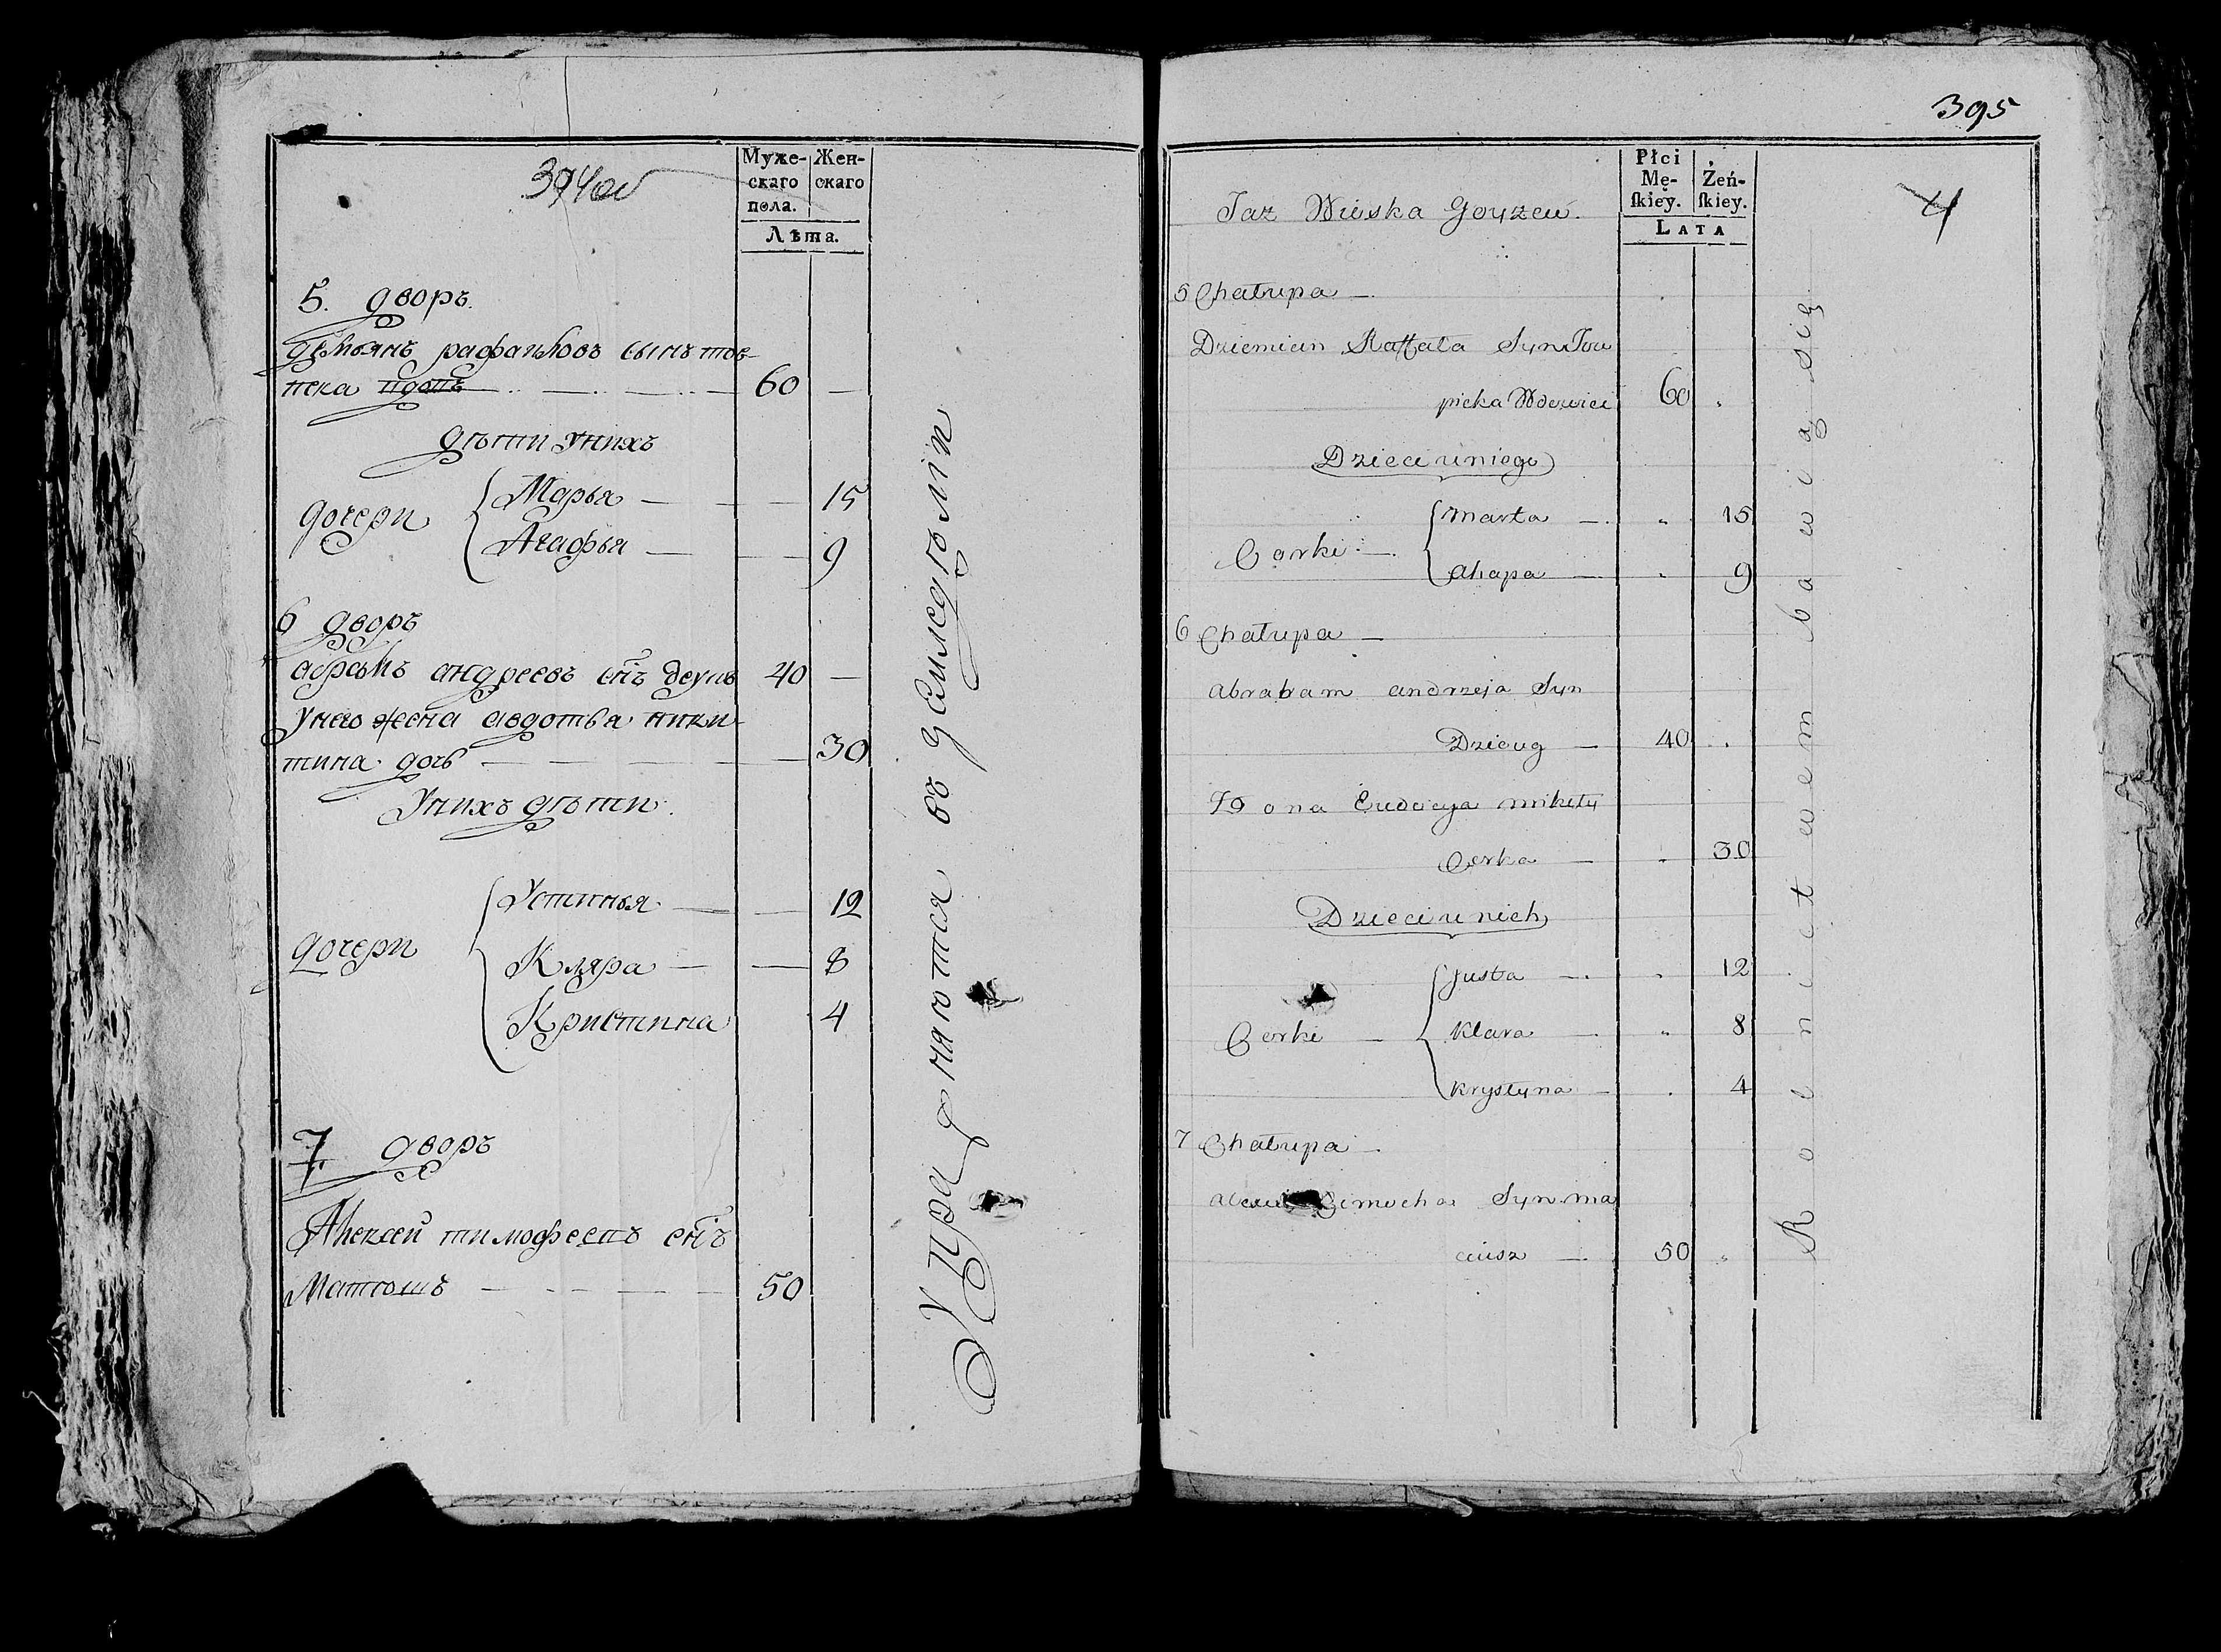 394об
Муже-
скаго
пола.
Жен-
скаго
Лѣта.
5. дворъ.
демьянъ рафаиловъ сынъ тов-
пека вдовъ 60 —
дѣти унихъ
дочери
Марья — 15
Агафья — 9
6 дворъ
абрамъ андреевъ снъ 40 —
унего жена авдотья ники-
тина дочь — 30
Унихъ дѣти.
дочери
Устинья — 12
Кляра — 8
Кристина 4
7 дворъ
Алексей тимофеевъ снъ
Матюшъ — 50
Упражняются въ земледѣліи
395
4
Taż Wioska
Płci
Mę-
ſkiey.
Żeń-
ſkiey.
LATA
5 Chałupa —
Dziemian Raffała Syn Tow
pieka Wdowiec 60 .
Dzieci uniego
Corki —
Marta — " 15
Ahapa — " 9
6 Chałupa —
Abraham Andrzeja Syn
Dzieug — 40 .
Żona Eudocya Mikity
Corka — " 30
Dzieci u nich
Corki —
Justa — . 12
Klara — " 8
Krystyna — . 4
7 Chałupa —
Syn Ma
ciusz — 50 "
Rolnictwem bawią się